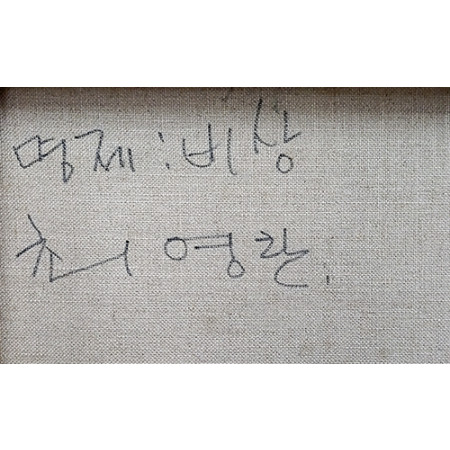 명제:비상
최영란.